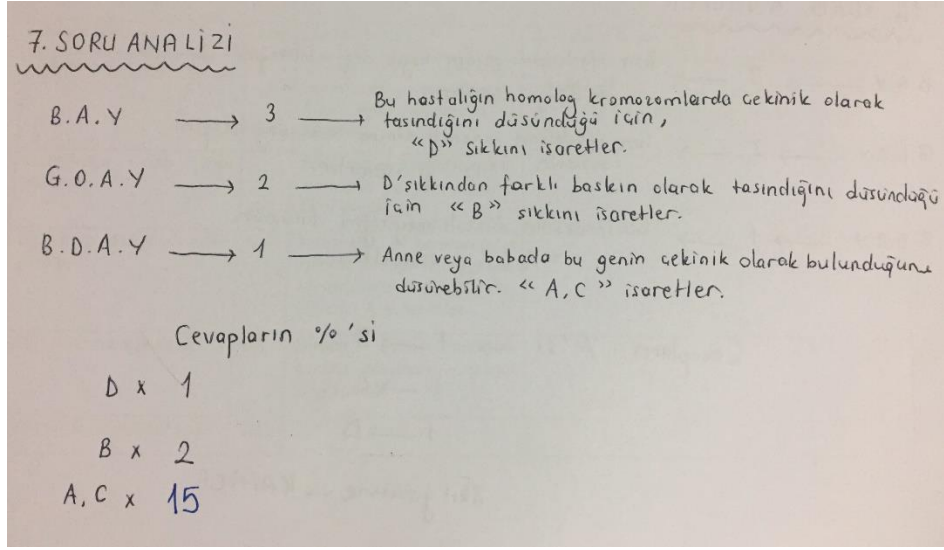 7. SORU ANALİZİ
B.A.Y → 3 → Bu hastalığın homolog kromozomlarda çekinik olarak
tasındığını düsündüğü için,
«D» Sıkkını isaretler.
G.O.A.Y → 2 → D'sıkkından farklı baskın olarak tasındığını düsündüğü
için «B» sıkkını isaretler.
B.D.A.Y → 1 → Anne veya babada bu genin çekinik olarak bulunduğunu
düsünebilir. «A,C» isaretler.
Cevapların %'si
D x 1
B x 2
A, C x 15